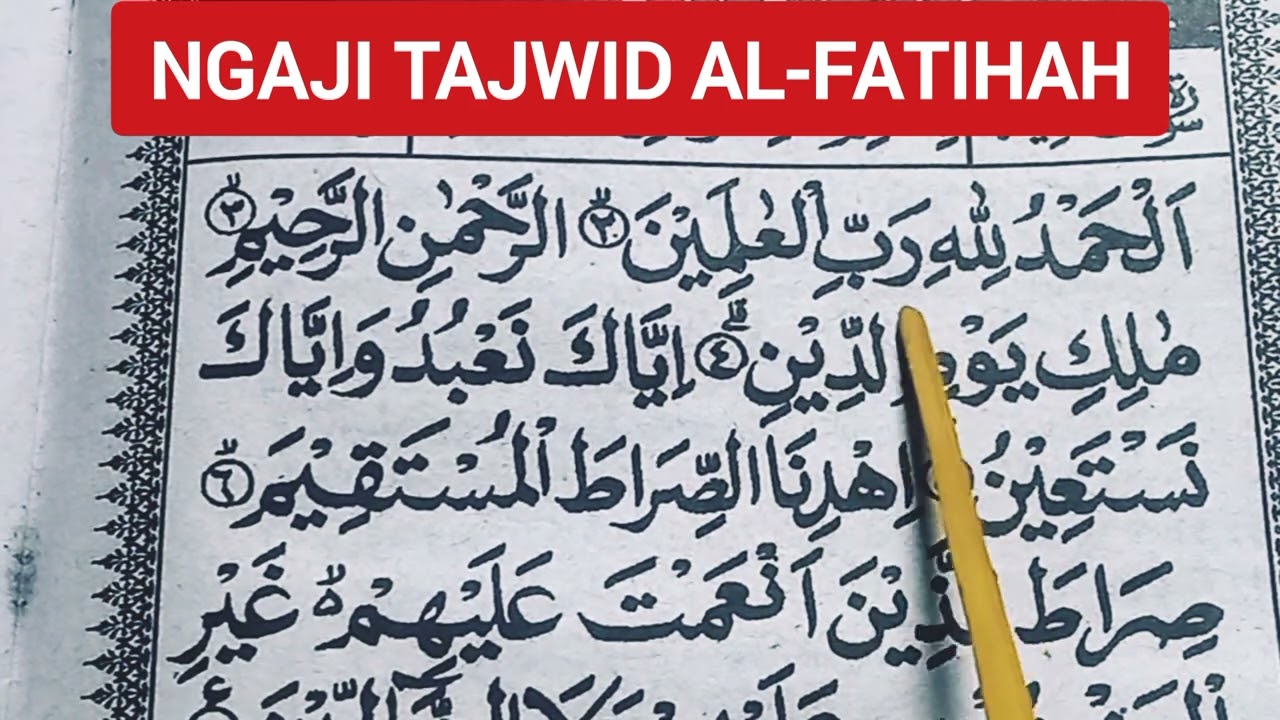 NGAJI TAJWID AL-FATIHAH
اَلْحَمْدُ لِلّٰهِ رَبِّ الْعٰلَمِيْنَ ۙ﴿٢﴾ الرَّحْمٰنِ الرَّحِيْمِ ۙ﴿٣﴾
مٰلِكِ يَوْمِ الدِّيْنِ ۗ﴿٤﴾ اِيَّاكَ نَعْبُدُ وَاِيَّاكَ
نَسْتَعِيْنُ اِهْدِنَا الصِّرَاطَ الْمُسْتَقِيْمَ ۙ﴿٦﴾
صِرَاطَ الَّذِيْنَ اَنْعَمْتَ عَلَيْهِمْ ەۙ غَيْرِ